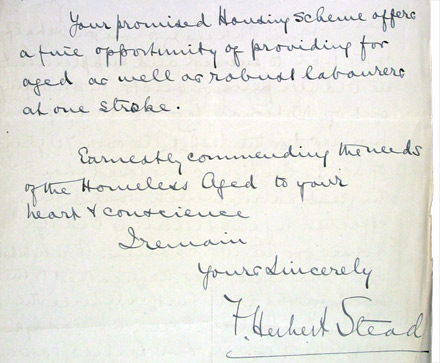 Your promised Housing Scheme offers
a fine opportunity of providing for
aged as well as robust labourers
at one stroke.
Earnestly commending the needs
of the Homeless Aged to your
heart & conscience
I remain
Yours Sincerely
F. Herbert Stead